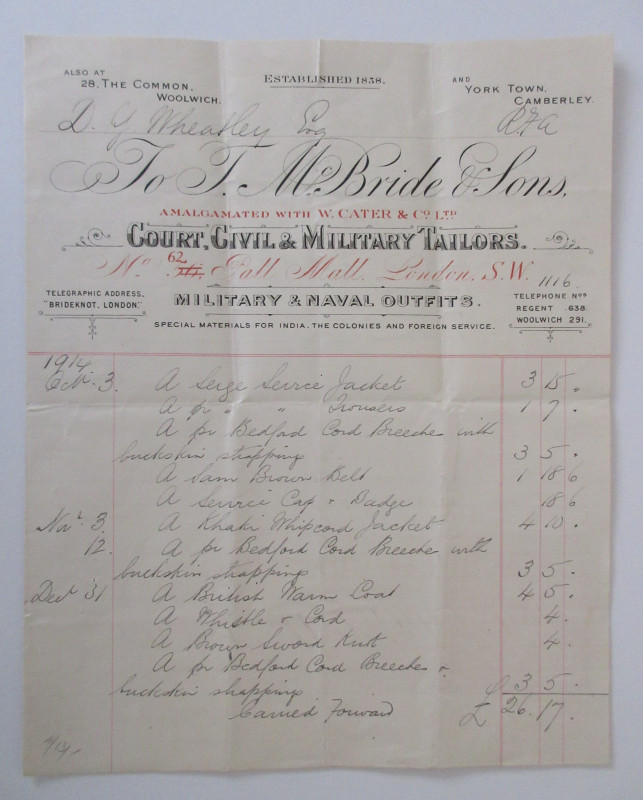 ALSO AT
28, THE COMMON,
WOOLWICH.
ESTABLISHED 1838.
AND
YORK TOWN,
CAMBERLEY.
D. G. Wheatley Esq
RFA
To T. McBride & Sons,
AMALGAMATED WITH W. CATER & CO LTD
COURT, CIVIL & MILITARY TAILORS.
No. 62 Pall Mall, London, S.W.
TELEGRAPHIC ADDRESS,
"BRIDEKNOT, LONDON"
MILITARY & NAVAL OUTFITS.
1116
TELEPHONE NOS
REGENT 638
WOOLWICH 291.
SPECIAL MATERIALS FOR INDIA, THE COLONIES AND FOREIGN SERVICE.
1914
Oct. 3. A Serge Service Jacket 3 15 .
A pr " " Trousers 1 7 .
A pr Bedford Cord Breeches with
buckskin strapping 3 5 .
A Sam Brown Belt 1 18 6
A Service Cap & Badge 18 6
Novr 3. A Khaki Whipcord Jacket 4 10 .
12. A pr Bedford Cord Breeches with
buckskin strapping 3 5 .
Decr 31 A British Warm Coat 4 5 .
A Whistle & Cord 4 .
A Brown Sword Knot 4 .
A pr Bedford Cord Breeches &
buckskin strapping 3 5 .
Carried Forward £ 26 17 .